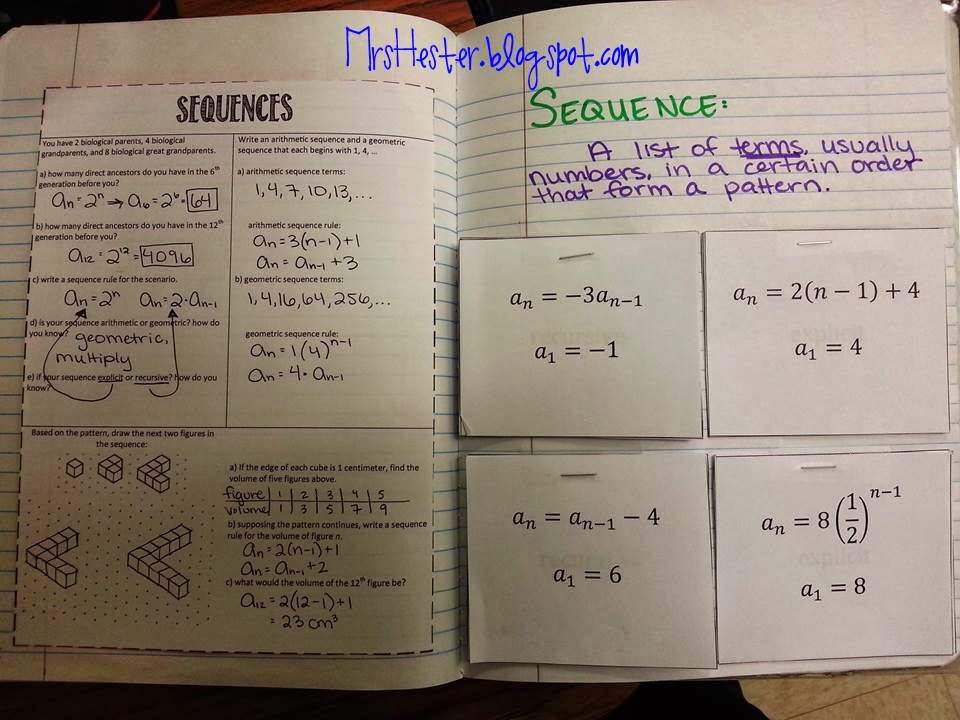 MrsHester.blogspot.com
SEQUENCES
You have 2 biological parents, 4 biological
grandparents, and 8 biological great grandparents.
a) how many direct ancestors do you have in the 6th
generation before you?
aₙ = 2ⁿ → a₆ = 2⁶ = 64
b) how many direct ancestors do you have in the 12th
generation before you?
a₁₂ = 2¹² = 4096
c) write a sequence rule for the scenario.
aₙ = 2ⁿ aₙ = 2·aₙ₋₁
d) is your sequence arithmetic or geometric? how do
you know? geometric,
multiply
e) if your sequence explicit or recursive? how do you
know?
Write an arithmetic sequence and a geometric
sequence that each begins with 1, 4, ...
a) arithmetic sequence terms:
1, 4, 7, 10, 13, ...
arithmetic sequence rule:
aₙ = 3(n-1)+1
aₙ = aₙ₋₁ + 3
b) geometric sequence terms:
1, 4, 16, 64, 256, ...
geometric sequence rule:
aₙ = 1(4)ⁿ⁻¹
aₙ = 4·aₙ₋₁
Based on the pattern, draw the next two figures in
the sequence:
a) If the edge of each cube is 1 centimeter, find the
volume of five figures above.
figure 1 2 3 4 5
volume 1 3 5 7 9
b) supposing the pattern continues, write a sequence
rule for the volume of figure n.
aₙ = 2(n-1)+1
aₙ = aₙ₋₁ + 2
c) what would the volume of the 12th figure be?
a₁₂ = 2(12-1)+1
= 23 cm³
SEQUENCE:
A list of terms, usually
numbers, in a certain order
that form a pattern.
aₙ = −3aₙ₋₁
a₁ = −1
aₙ = 2(n − 1) + 4
a₁ = 4
aₙ = aₙ₋₁ − 4
a₁ = 6
aₙ = 8(1/2)ⁿ⁻¹
a₁ = 8